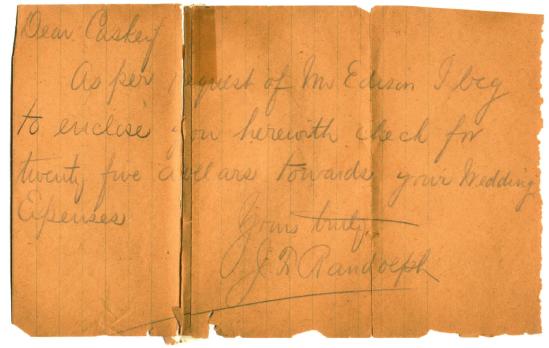 Dear Caskey
As per request of Mr Edison I beg
to enclose you herewith check for
twenty five dollars towards your Wedding
Expenses
Yours truly
J F Randolph